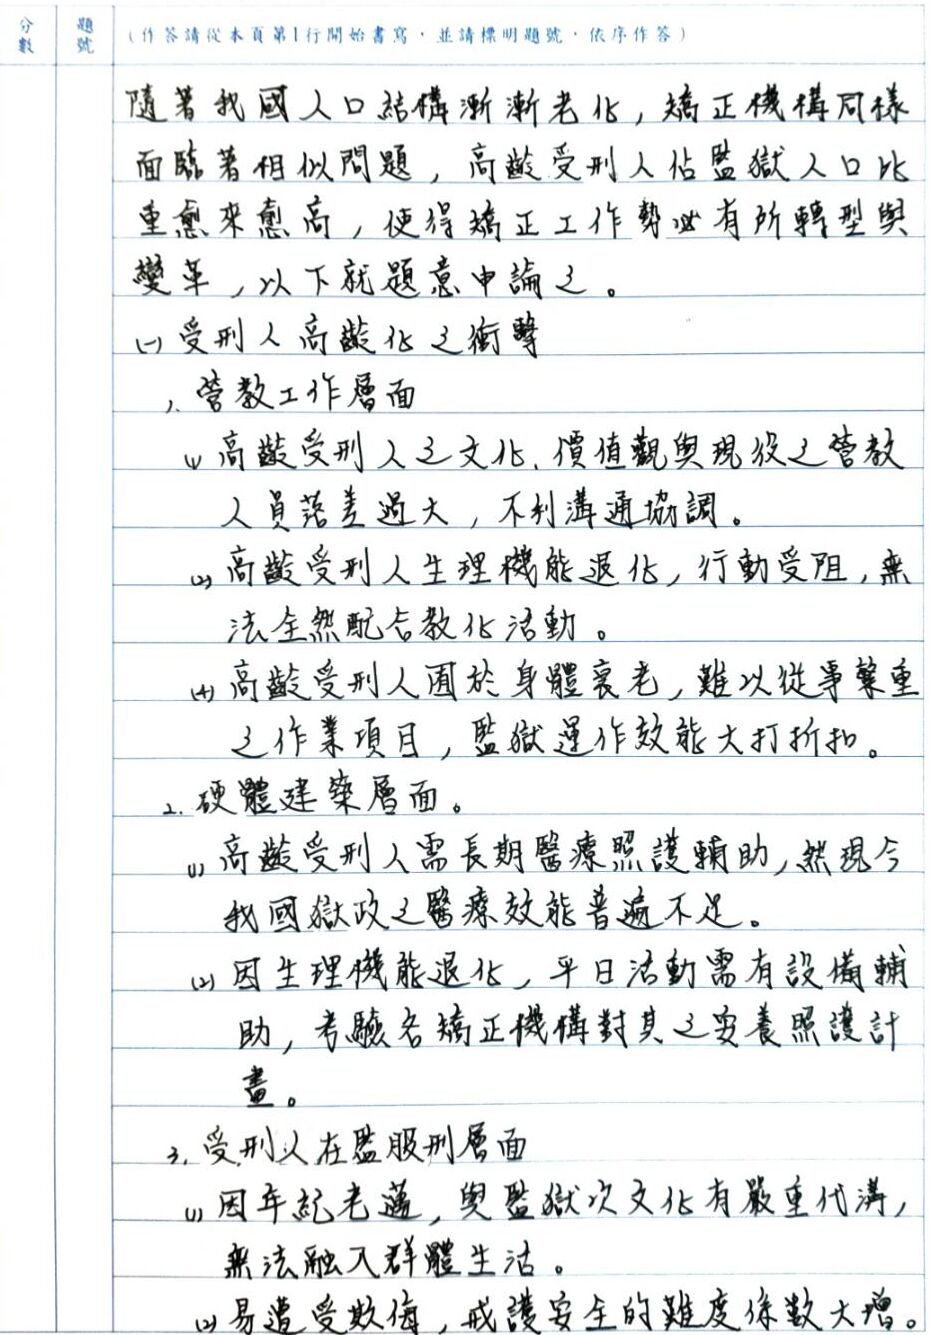 分數
題號
(作答請從本頁第1行開始書寫,並請標明題號,依序作答)
隨著我國人口結構漸漸老化,矯正機構同樣
面臨著相似問題,高齡受刑人佔監獄人口比
重愈來愈高,使得矯正工作勢必有所轉型與
變革,以下就題意申論之。
(一)受刑人高齡化之衝擊
1.管教工作層面
(1)高齡受刑人之文化、價值觀與現役之管教
人員落差過大,不利溝通協調。
(2)高齡受刑人生理機能退化,行動受阻,無
法全然配合教化活動。
高齡受刑人囿於身體衰老,難以從事繁重
之作業項目,監獄運作效能大打折扣。
2.硬體建築層面。
(1)高齡受刑人需長期醫療照護輔助,然現今
我國獄政之醫療效能普遍不足。
(2)因生理機能退化,平日活動需有設備輔
助,考驗各矯正機構對其之安養照護計
畫。
3.受刑人在監服刑層面
(1)因年紀老邁,與監獄次文化有嚴重代溝,
無法融入群體生活。
(2)易遭受欺侮,戒護安全的難度係數大增。